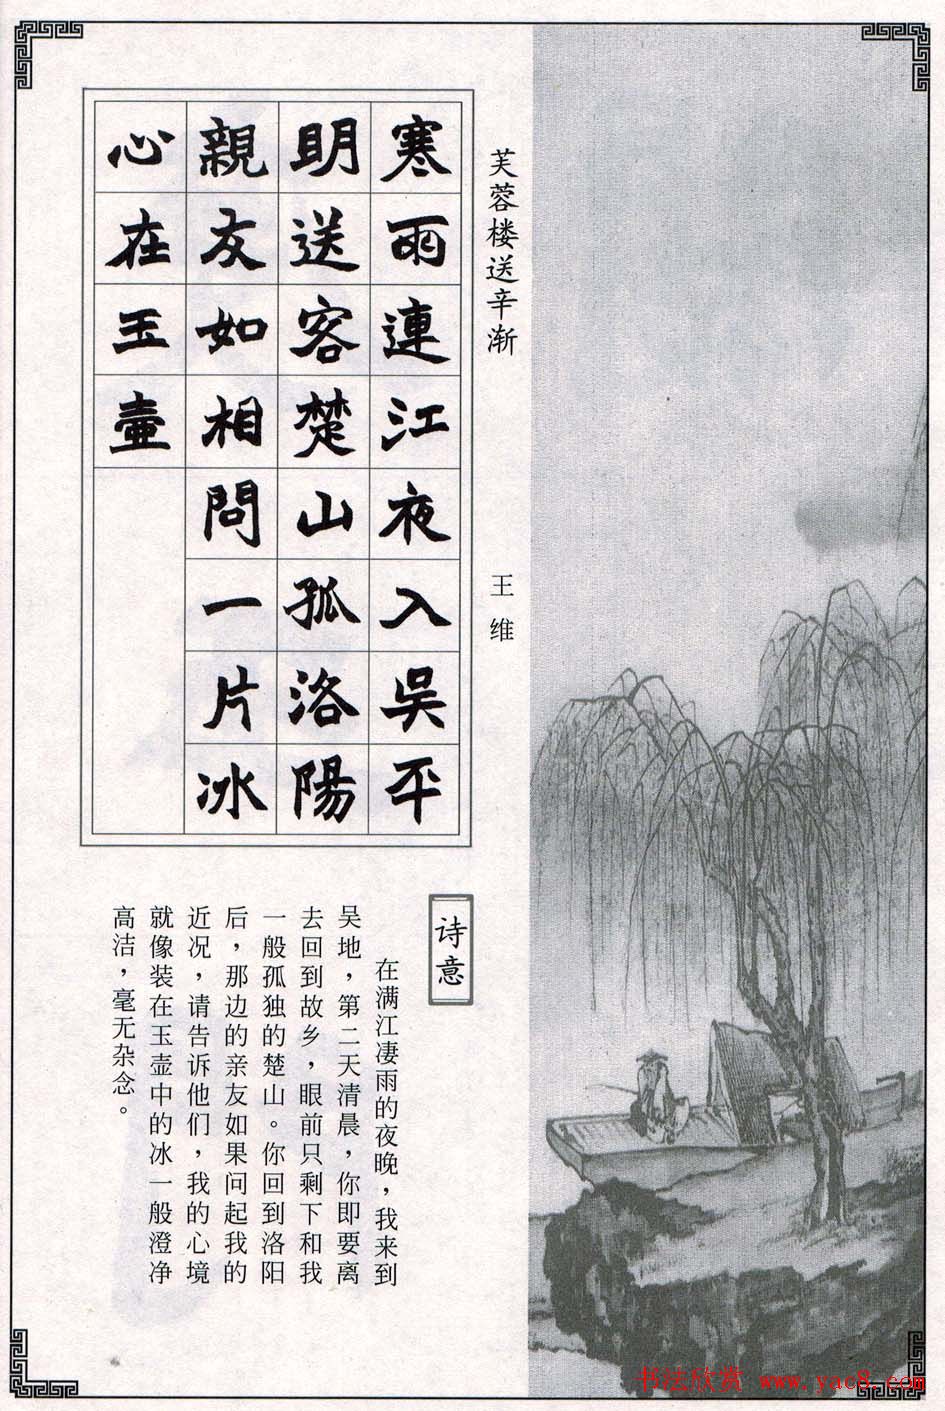 芙蓉楼送辛渐
王维
寒雨連江夜入吳平
明送客楚山孤洛陽
親友如相問一片冰
心在玉壺
诗意
在满江凄雨的夜晚，我来到
吴地，第二天清晨，你即要离
去回到故乡，眼前只剩下和我
一般孤独的楚山。你回到洛阳
后，那边的亲友如果问起我的
近况，请告诉他们，我的心境
就像装在玉壶中的冰一般澄净
高洁，毫无杂念。
书法欣赏 www.yac8.com